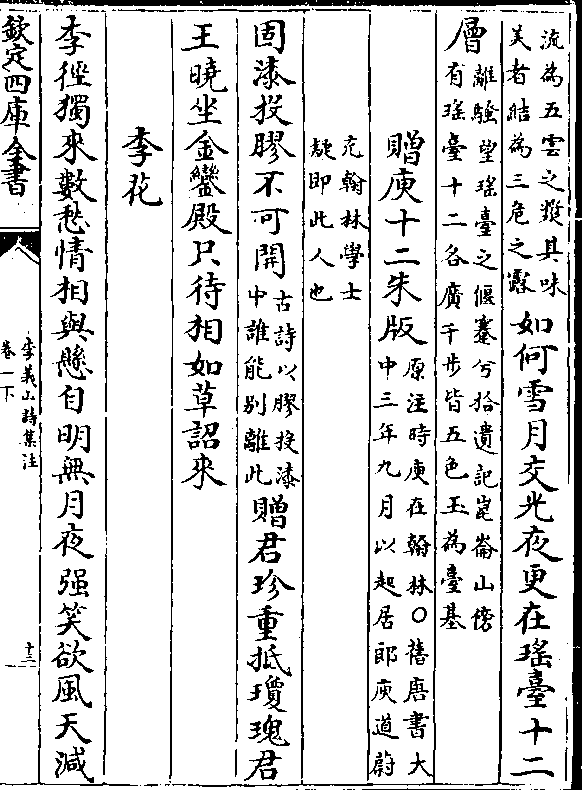 流為五雲之漿其味
美者結為三危之露如何雪月交光夜更在瑤臺十二
層離騷望瑤臺之偃蹇兮拾遺記崑崙山傍
有瑤臺十二各廣千步皆五色玉為臺基
贈庾十二朱版原注時庾在翰林○舊唐書大
中三年九月以起居郎庾道蔚
充翰林學士
疑即此人也
固漆投膠不可開古詩以膠投漆
中誰能别離此贈君珍重抵瓊瑰君
王曉坐金鑾殿只待相如草詔來
李花
李徑獨來數愁情相與懸自明無月夜强笑欲風天減
欽定四庫全書
李義山詩集注
卷一下
十三